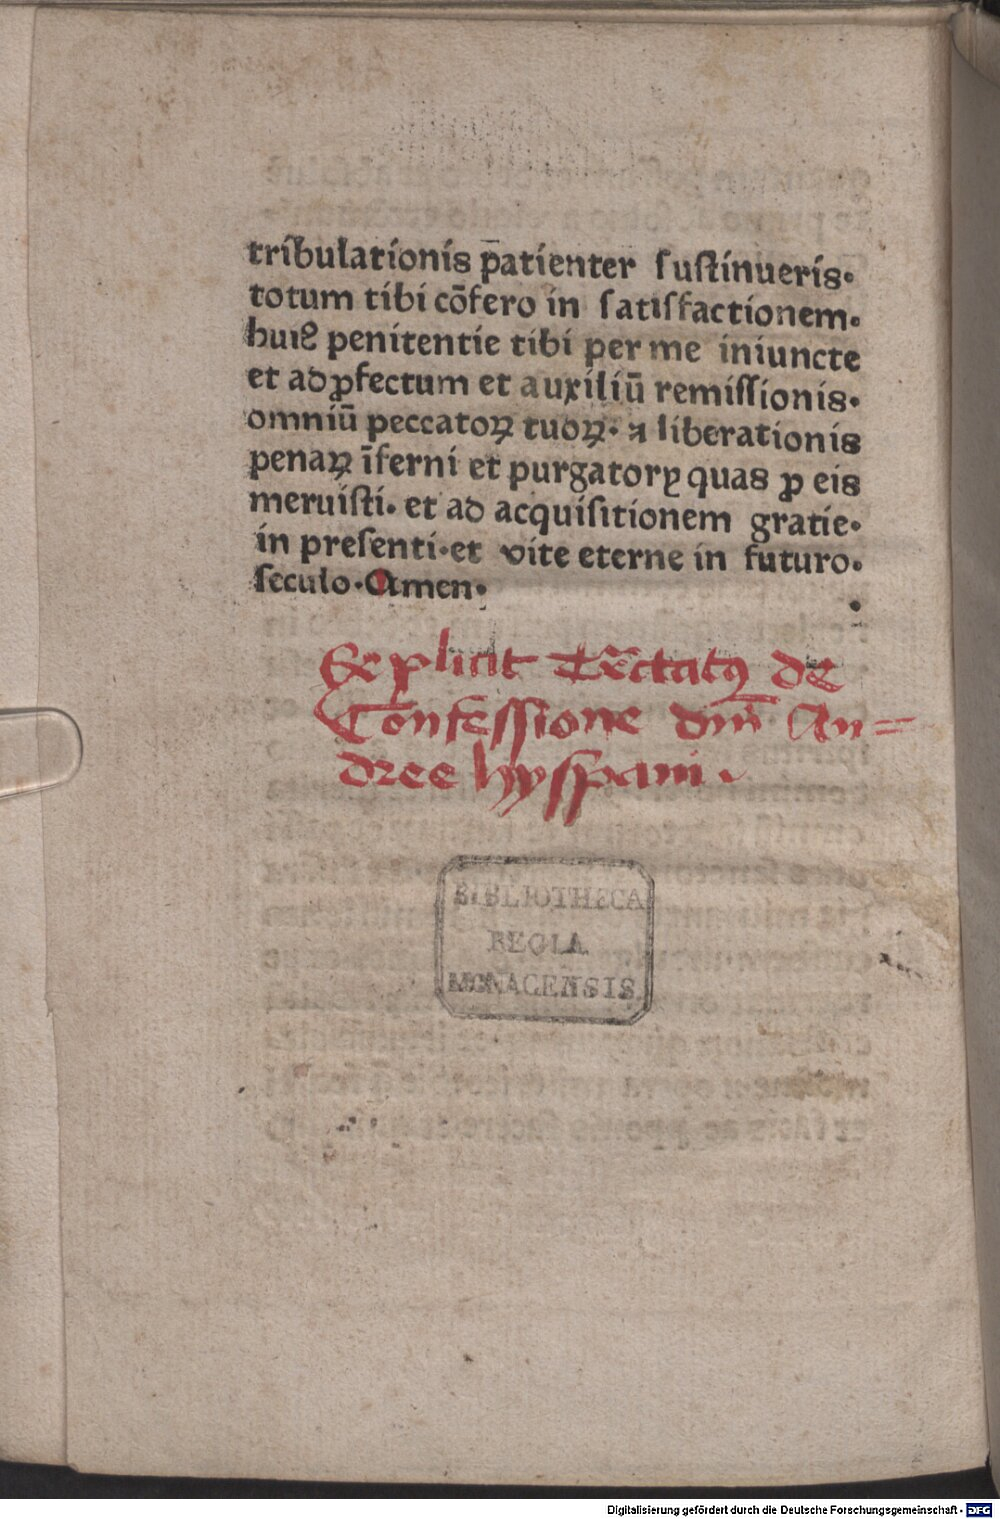 tribulationis p̄atienter sustinueris·
totum tibi cōfero in satisfactionem·
huiꝰ penitentie tibi per me iniuncte
et ad ꝓfectum et auxiliū remissionis·
omniū peccatoꝝ tuoꝝ· ⁊ liberationis
penaꝝ īferni et purgatorꝭ quas ꝓ eis
meruisti· et ad acquisitionem gratie·
in presenti·et vite eterne in futuro·
seculo·Amen·
Explicit Tractatꝰ de
Confessione dm̄ An=
dree hyspani .
BIBLIOTHECA
REGIA
MONACENSIS
Digitalisierung gefördert durch die Deutsche Forschungsgemeinschaft - DFG